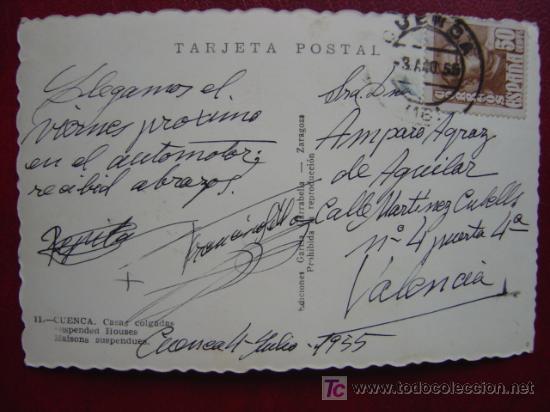 TARJETA POSTAL
CUENCA
CORREOS
ESPAÑA 50
Llegamos el
viernes proximo
en el automotor;
recibid abrazos.
Pepita
Francisco
Amparo Agraz
de Aguilar
Calle Martinez Cubells
nº 4 puerta 4ª
Valencia
Ediciones García Garrabella — Zaragoza
Prohibida la reproducción
11.—CUENCA. Casas colgadas
Suspended Houses
Maisons suspendues.
Cuenca 4-Julio-1955
todocoleccion
www.todocoleccion.net